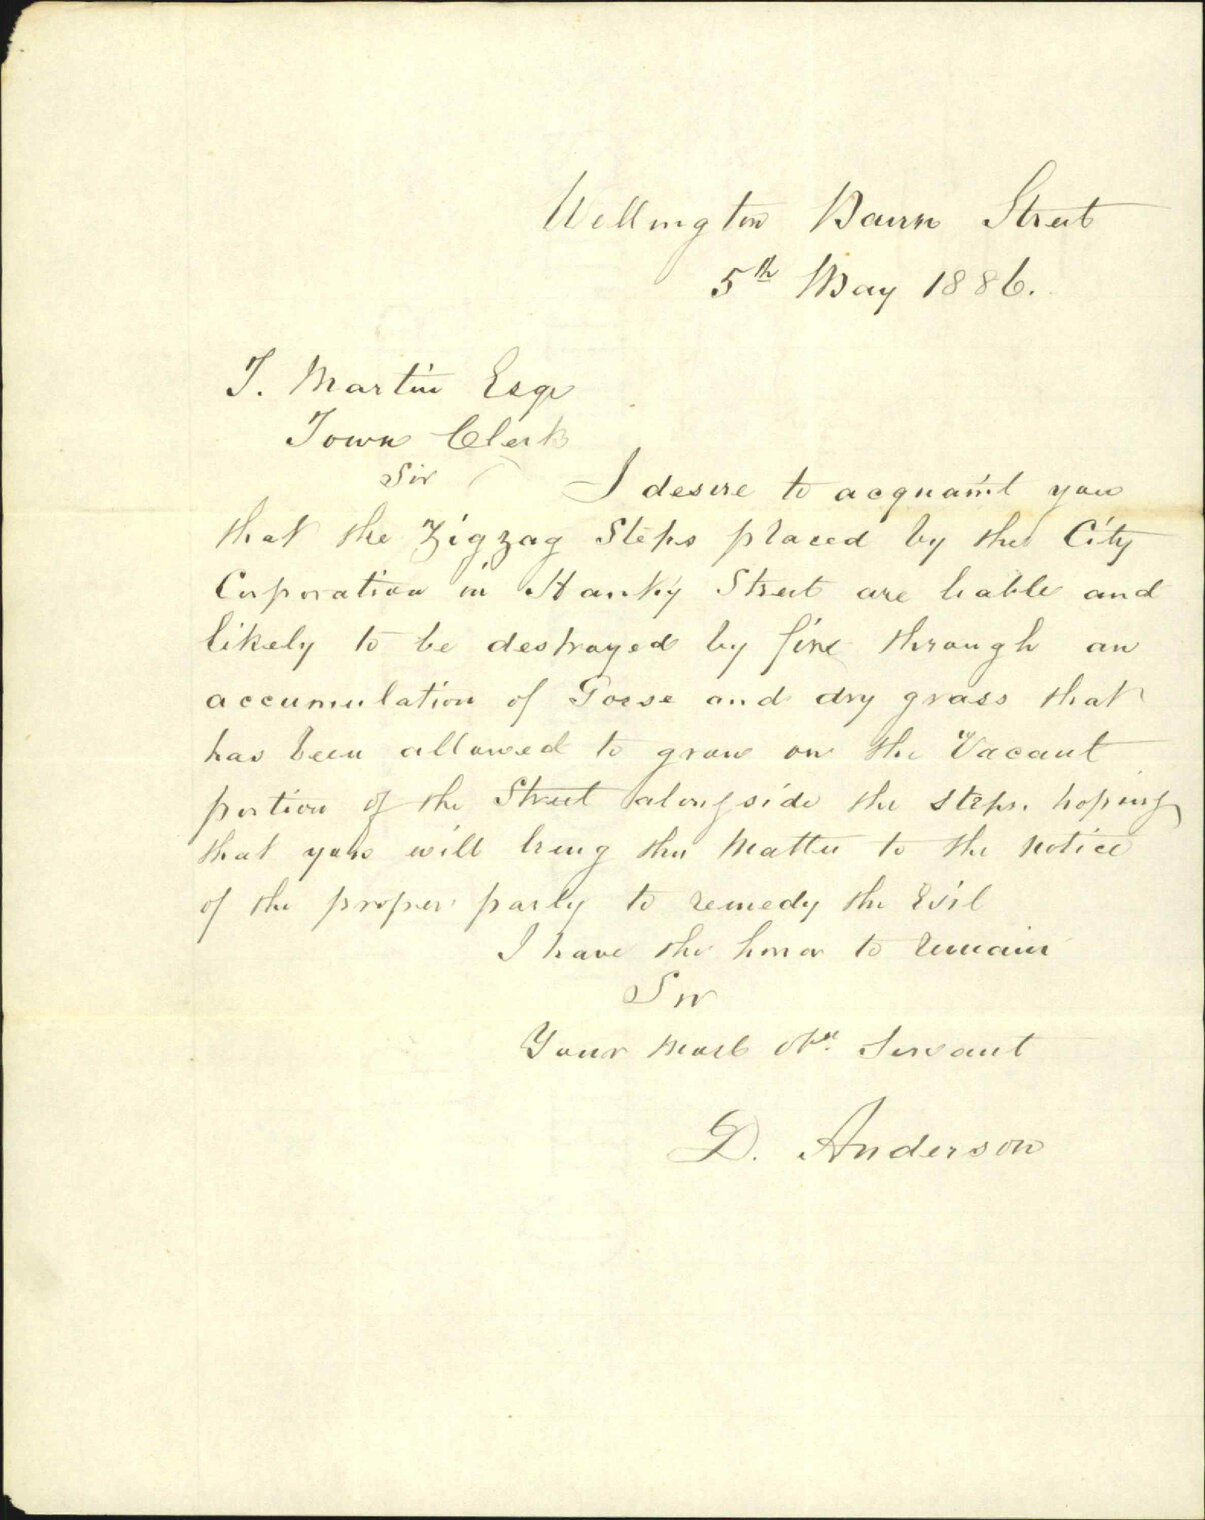 Wellington Bairn Street
5th May 1886.
T. Martin Esqr
Town Clerk
Sir I desire to acquaint you
that the Zigzag Steps placed by the City
Corporation in Hanky Street are liable and
likely to be destroyed by fire through an
accumulation of Gorse and dry grass that
has been allowed to grow on the Vacant
portion of the Street alongside the steps. hoping
that you will bring the Matter to the notice
of the proper party to remedy the Evil
I have the honor to remain
Sir
Your Most Obt. Servant
D. Anderson